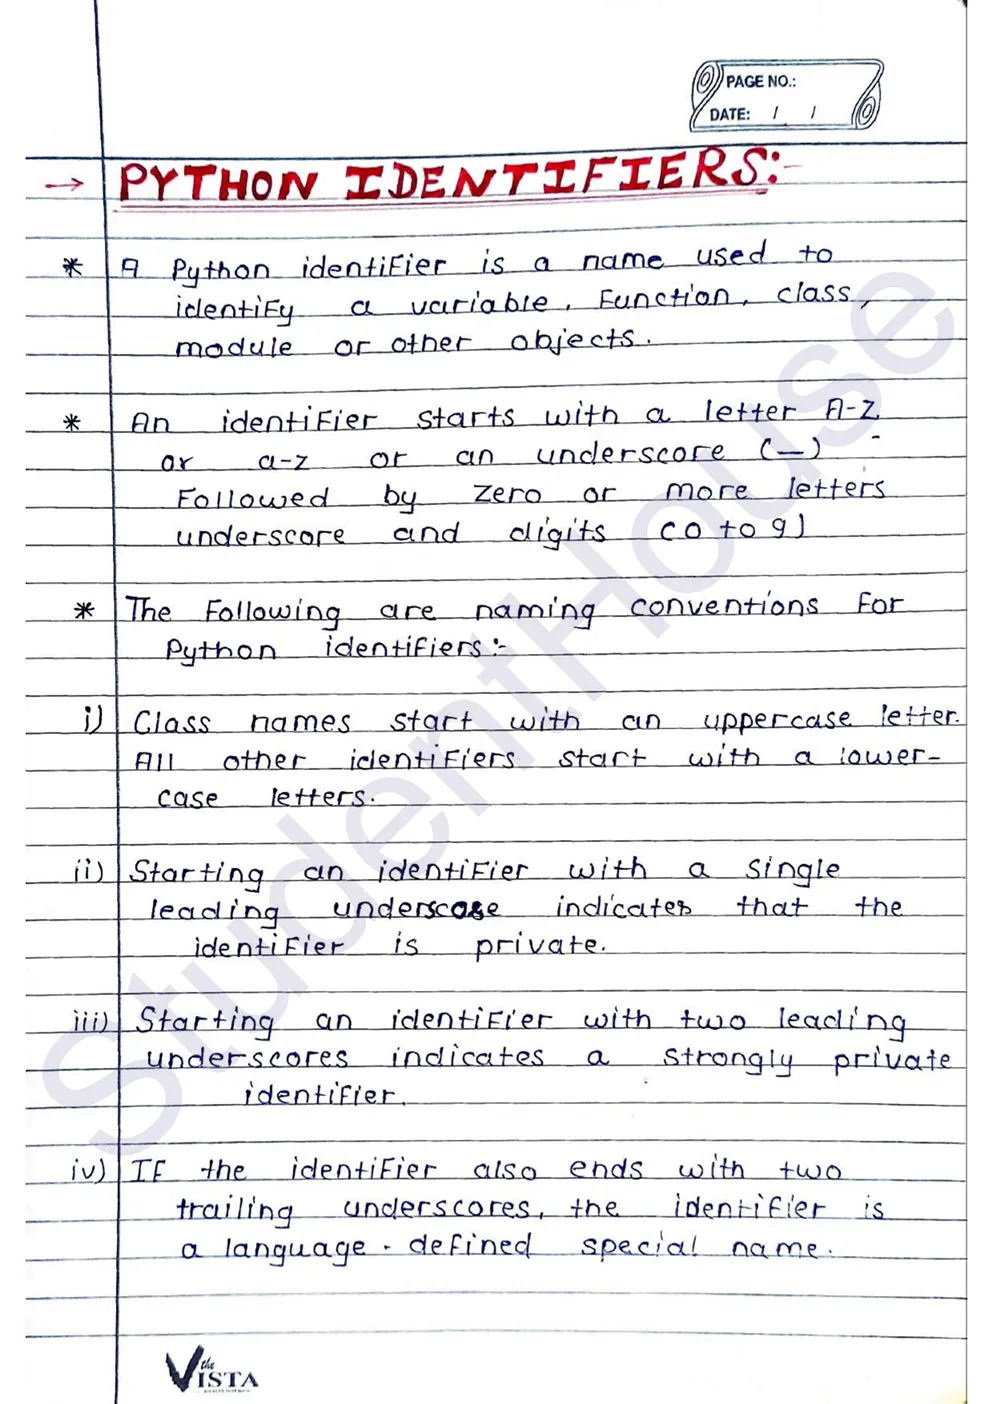 PAGE NO.:
DATE: / /
→ PYTHON IDENTIFIERS:-
* A Python identifier is a name used to
identify a variable, function, class,
module or other objects.
* An identifier starts with a letter A-Z
or a-z or an underscore (_)
Followed by zero or more letters
underscore and digits (0 to 9)
* The Following are naming conventions for
Python identifiers:-
i) Class names start with an uppercase letter.
All other identifiers start with a lower-
case letters.
ii) Starting an identifier with a single
leading underscose indicates that the
identifier is private.
iii) Starting an identifier with two leading
underscores indicates a strongly private
identifier.
iv) If the identifier also ends with two
trailing underscores, the identifier is
a language-defined special name.
StudentHouse
the
VISTA